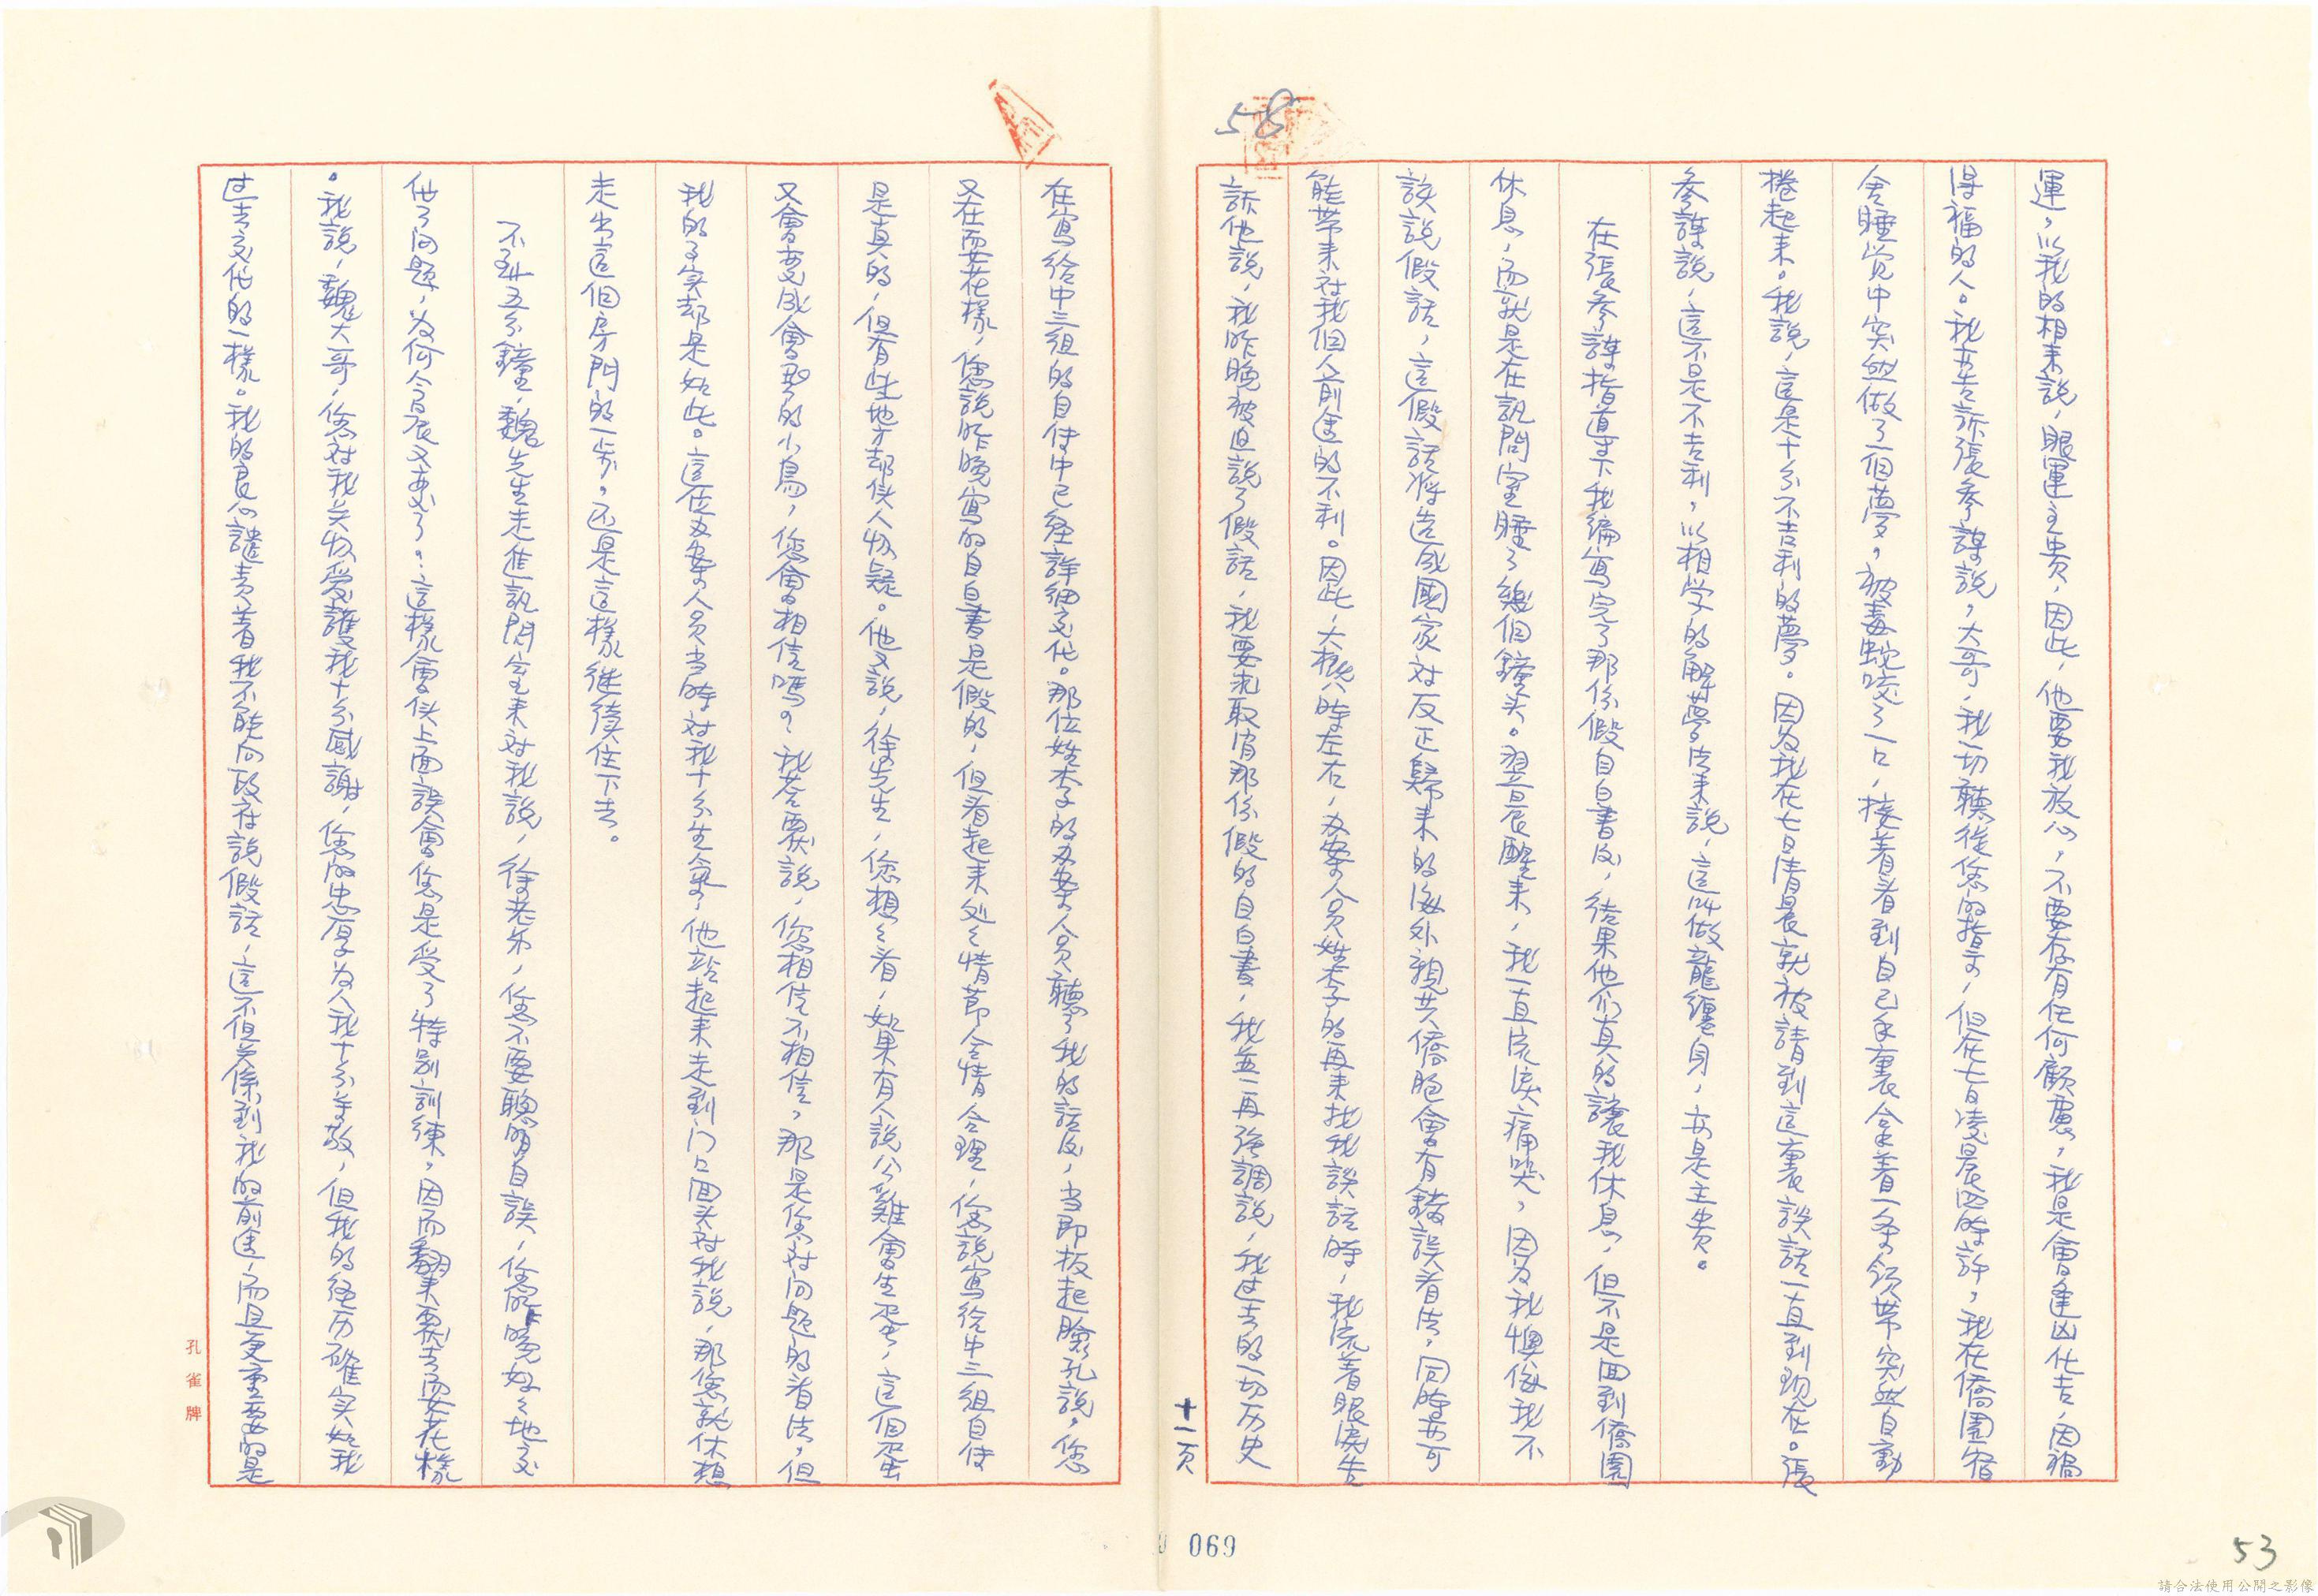 58
運，以我的相来説，眼運主贵，因此，他要我放心，不要存有任何顧慮，我是會逢凶化吉，因禍
得福的人。我并告訴張参謀説，大哥，我一切聽從您的指示，但在七日凌晨四時許，我在僑園宿
舍睡觉中突然做了一個夢，被毒蛇咬了一口，接着看到自己手裏拿着一条领带突然自動
捲起来。我説，這是十分不吉利的夢。因为我在七日清晨就被請到這裏談話一直到现在。張
参謀説，這不是不吉利，以相学的解夢法来説，這叫做龍纏身，亦是主贵。
在張参謀指導下我编寫完了那份假自白書后，结果他们真的讓我休息，但不是回到僑園
休息，而就是在訊問室睡了幾個鐘头。翌日晨醒来，我一直流淚痛哭，因为我懊悔我不
該説假話，這假話將造成國家对反正歸来的海外親共僑胞會有錯誤看法，同時亦可
能带来对我個人前途的不利。因此，大概八時左右，办案人员姓李的再来找我談話時，我流着眼淚告
訴他説，我昨晚被迫説了假話，我要求取消那份假的自白書，我並一再强調説，我过去的一切历史
十一页
在寫给中三組的自传中已经詳细交代。那位姓李的办案人员聽了我的話后，当即板起臉孔説，您
又在耍花樣，您説昨晚寫的自白書是假的，但看起来处々情節合情合理，您説寫给中三組自传
是真的，但有些地方却使人怀疑。他又説，徐先生，您想々看，如果有人説公雞會生蛋，這個蛋
又會变成會飛的小鳥，您會相信嗎？我答覆説，您相信不相信，那是您对问题的看法，但
我的事实却是如此。這位办案人员当時对我十分生氣，他站起来走到门口回头对我説，那您就休想
走出這個房門的一步，还是這樣继续住下去。
不到廿五分鐘，魏先生走進訊問室来对我説，徐老弟，您不要聰明自誤，您昨晚好々地交
代了问题，为何今晨又变了？這樣會使上面誤會您是受了特别訓練，因而翻来覆去耍花樣
。我説，魏大哥，您对我关怀愛護我十分感謝，您的忠厚为人我十分尊敬，但我的经历確实如我
过去交代的一樣。我的良心譴责着我不能向政府説假話，這不但关係到我的前途，而且更重要的是
孔雀牌
069
53
請合法使用公開之影像